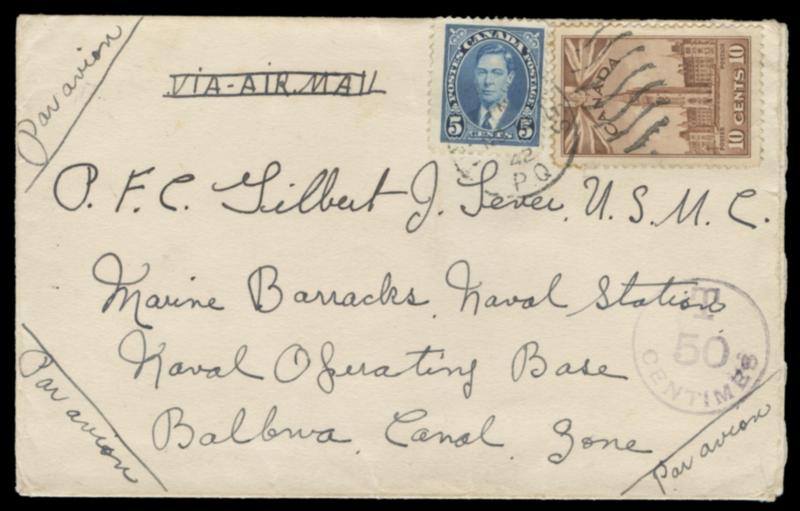 Par avion
VIA-AIR.MAIL
POSTES CANADA POSTAGE
5 5
CENTS
CANADA
POSTES POSTAGE
10 CENTS 10
42
P.Q
P. F. C. Gilbert J. Sever, U. S. M. C.
Marine Barracks, Naval Station
Naval Operating Base
Balbwa, Canal Zone
T
50
CENTIMES
Par avion
Par avion